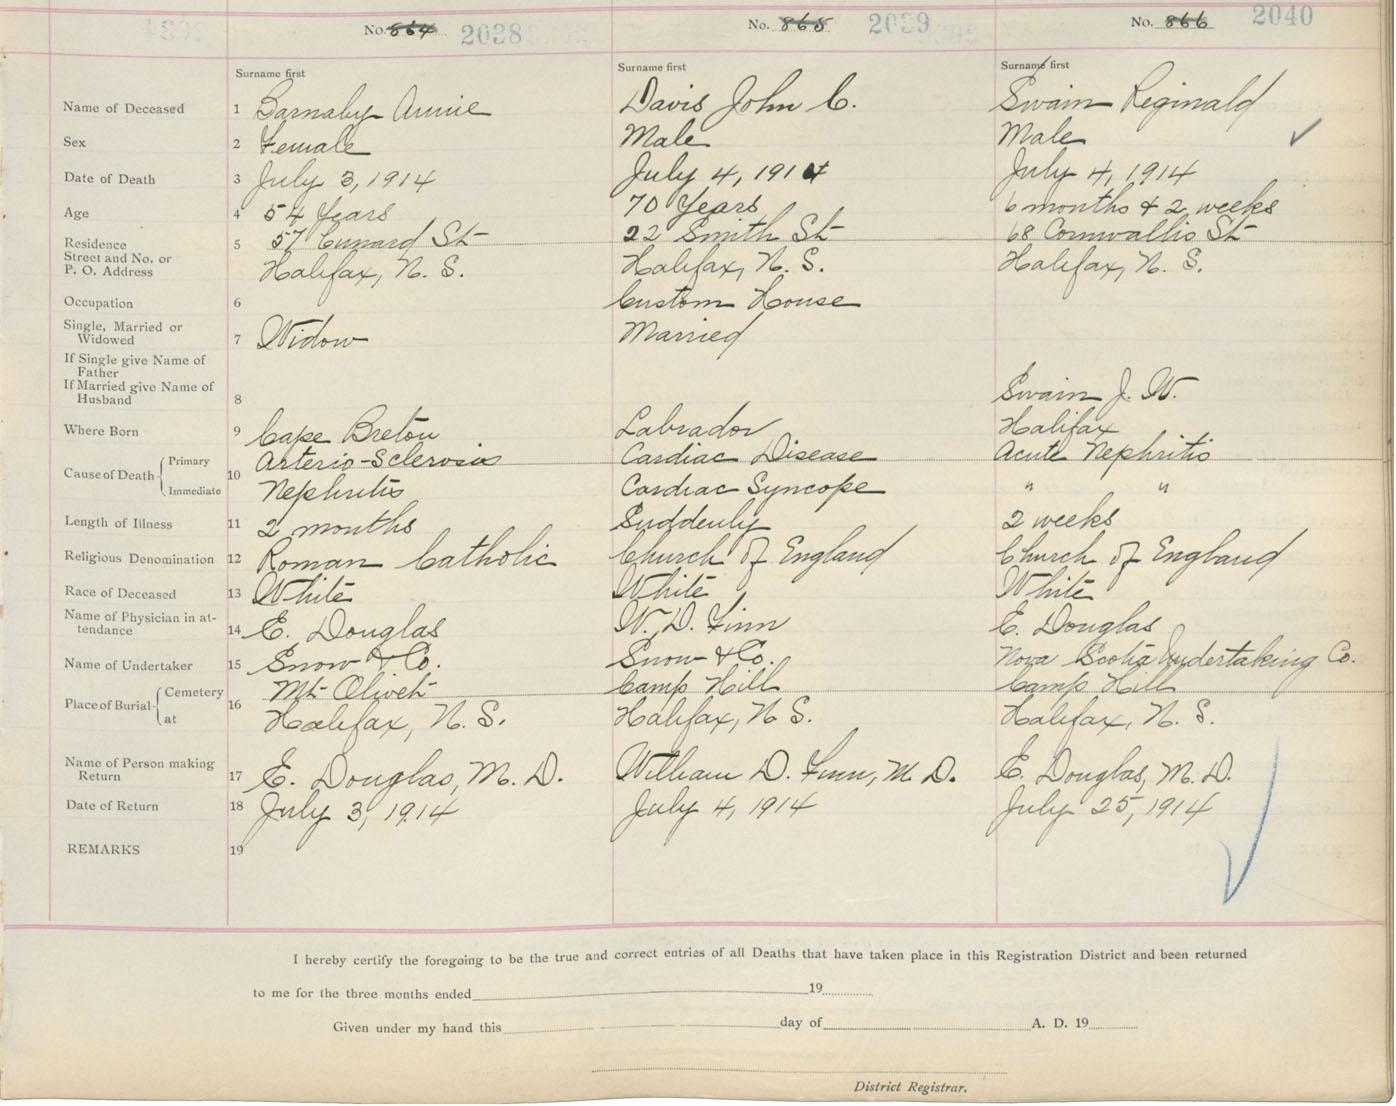 No. 864 2038
No. 865 2039
No. 866 2040
Surname first
Surname first
Surname first
Name of Deceased 1 Barnaby Annie
Davis John C.
Swain Reginald
Sex 2 Female
Male
Male
Date of Death 3 July 3, 1914
July 4, 1914
July 4, 1914
Age 4 54 Years
70 Years
6 months & 2 weeks
Residence
Street and No. or
P. O. Address
5 57 Cunard St
Halifax, N. S.
22 Smith St
Halifax, N. S.
68 Cornwallis St
Halifax, N. S.
Occupation 6
Custom House
Single, Married or
Widowed
7 Widow
Married
If Single give Name of
Father
If Married give Name of
Husband
8
Swain J. W.
Where Born 9 Cape Breton
Labrador
Halifax
Cause of Death Primary
Immediate
10 Arterio-Sclerosis
Nephritis
Cardiac Disease
Cardiac Syncope
Acute Nephritis
" "
Length of Illness 11 2 months
Suddenly
2 weeks
Religious Denomination 12 Roman Catholic
Church of England
Church of England
Race of Deceased 13 White
White
White
Name of Physician in at-
tendance
14 E. Douglas
W. D. Finn
E. Douglas
Name of Undertaker 15 Snow & Co.
Snow & Co.
Nova Scotia Undertaking Co.
Place of Burial Cemetery
at
16 Mt Olivet
Halifax, N. S.
Camp Hill
Halifax, N S.
Camp Hill
Halifax, N. S.
Name of Person making
Return
17 E. Douglas, M. D.
William D. Finn, M. D.
E. Douglas, M. D.
Date of Return 18 July 3, 1914
July 4, 1914
July 25, 1914
REMARKS 19
I hereby certify the foregoing to be the true and correct entries of all Deaths that have taken place in this Registration District and been returned
to me for the three months ended 19
Given under my hand this day of A. D. 19
District Registrar.